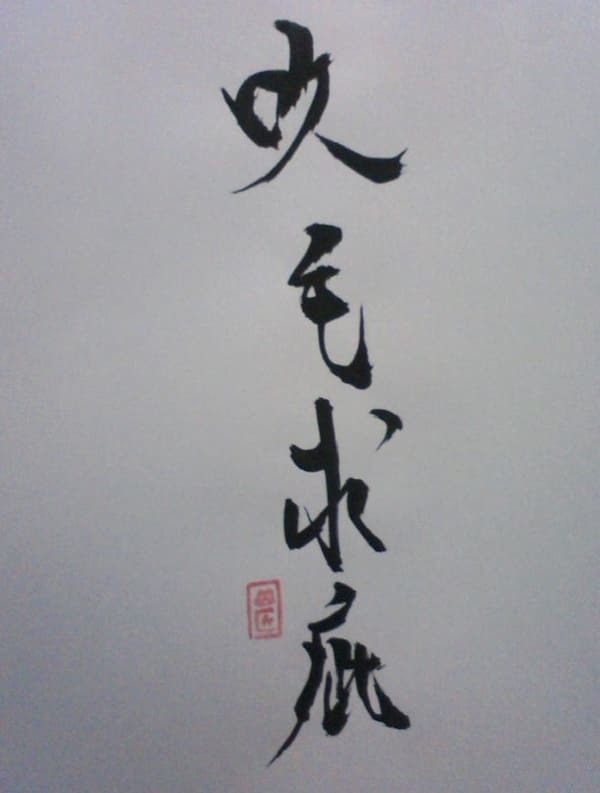 吹毛求疵